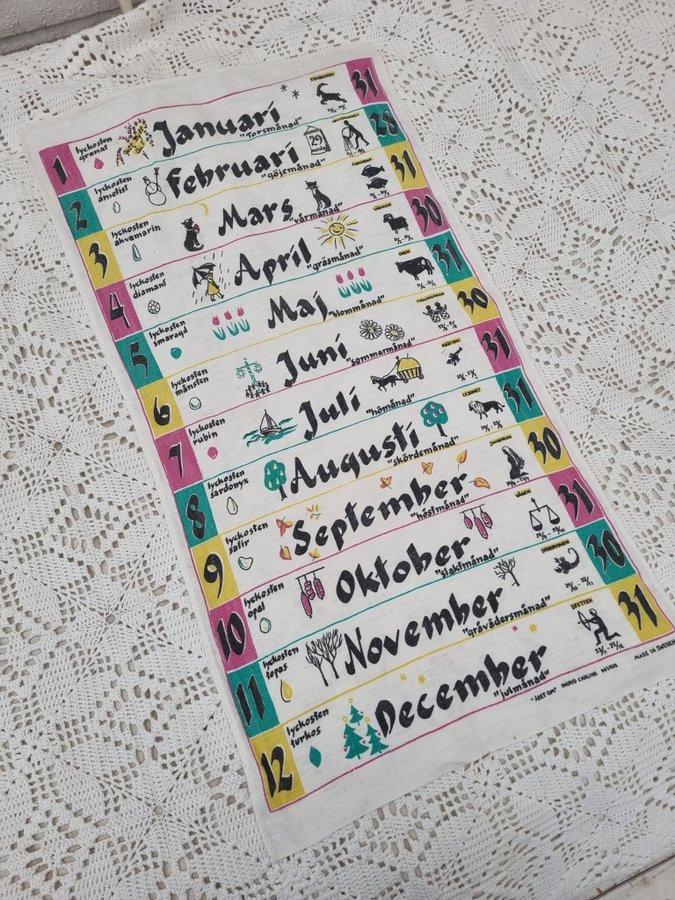 1 lyckosten granat Januari "torsmånad" STENBOCKEN 31
2 lyckosten ametist Februari "göjemånad" 29 28
3 lyckosten akvamarin Mars "vårmånad" FISKARNA 31
4 lyckosten diamant April "gräsmånad" VÄDUREN 30
5 lyckosten smaragd Maj "blommånad" OXEN 31
6 lyckosten månsten Juni "sommarmånad" TVILLINGARNA 30
7 lyckosten rubin Juli "hömånad" KRÄFTAN 31
8 lyckosten sardonyx Augusti "skördemånad" LEJONET 31
9 lyckosten safir September "höstmånad" JUNGFRUN 30
10 lyckosten opal Oktober "slaktmånad" VÅGEN 31
11 lyckosten topas November "gråvädersmånad" SKORPIONEN 30
12 lyckosten turkos December "julmånad" SKYTTEN 31
"ÅRET OM" INGRID CARLING DESIGN MADE IN SWEDEN